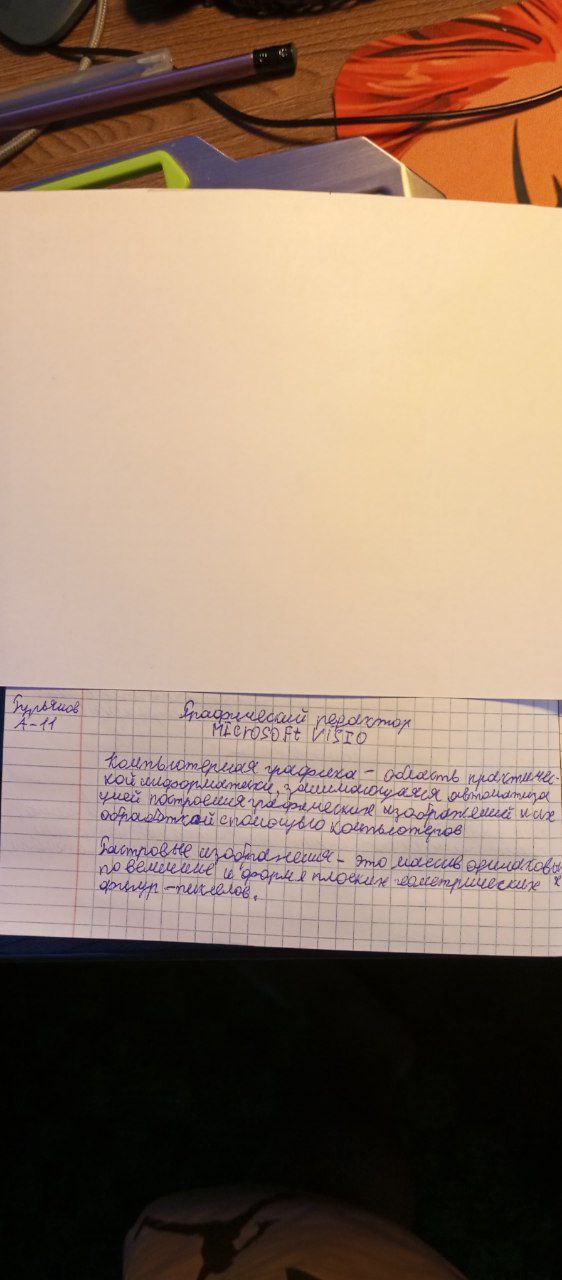 Гурьянов
А-11
Графический редактор
Microsoft Visio
Компьютерная графика - область практичес-
кой информатики, занимающаяся автоматиза
цией построения графических изображений и их
обработкой с помощью компьютеров
Растровые изображения - это массив одинаковых
по величине и форме плоских геометрических
фигур - пикселов.